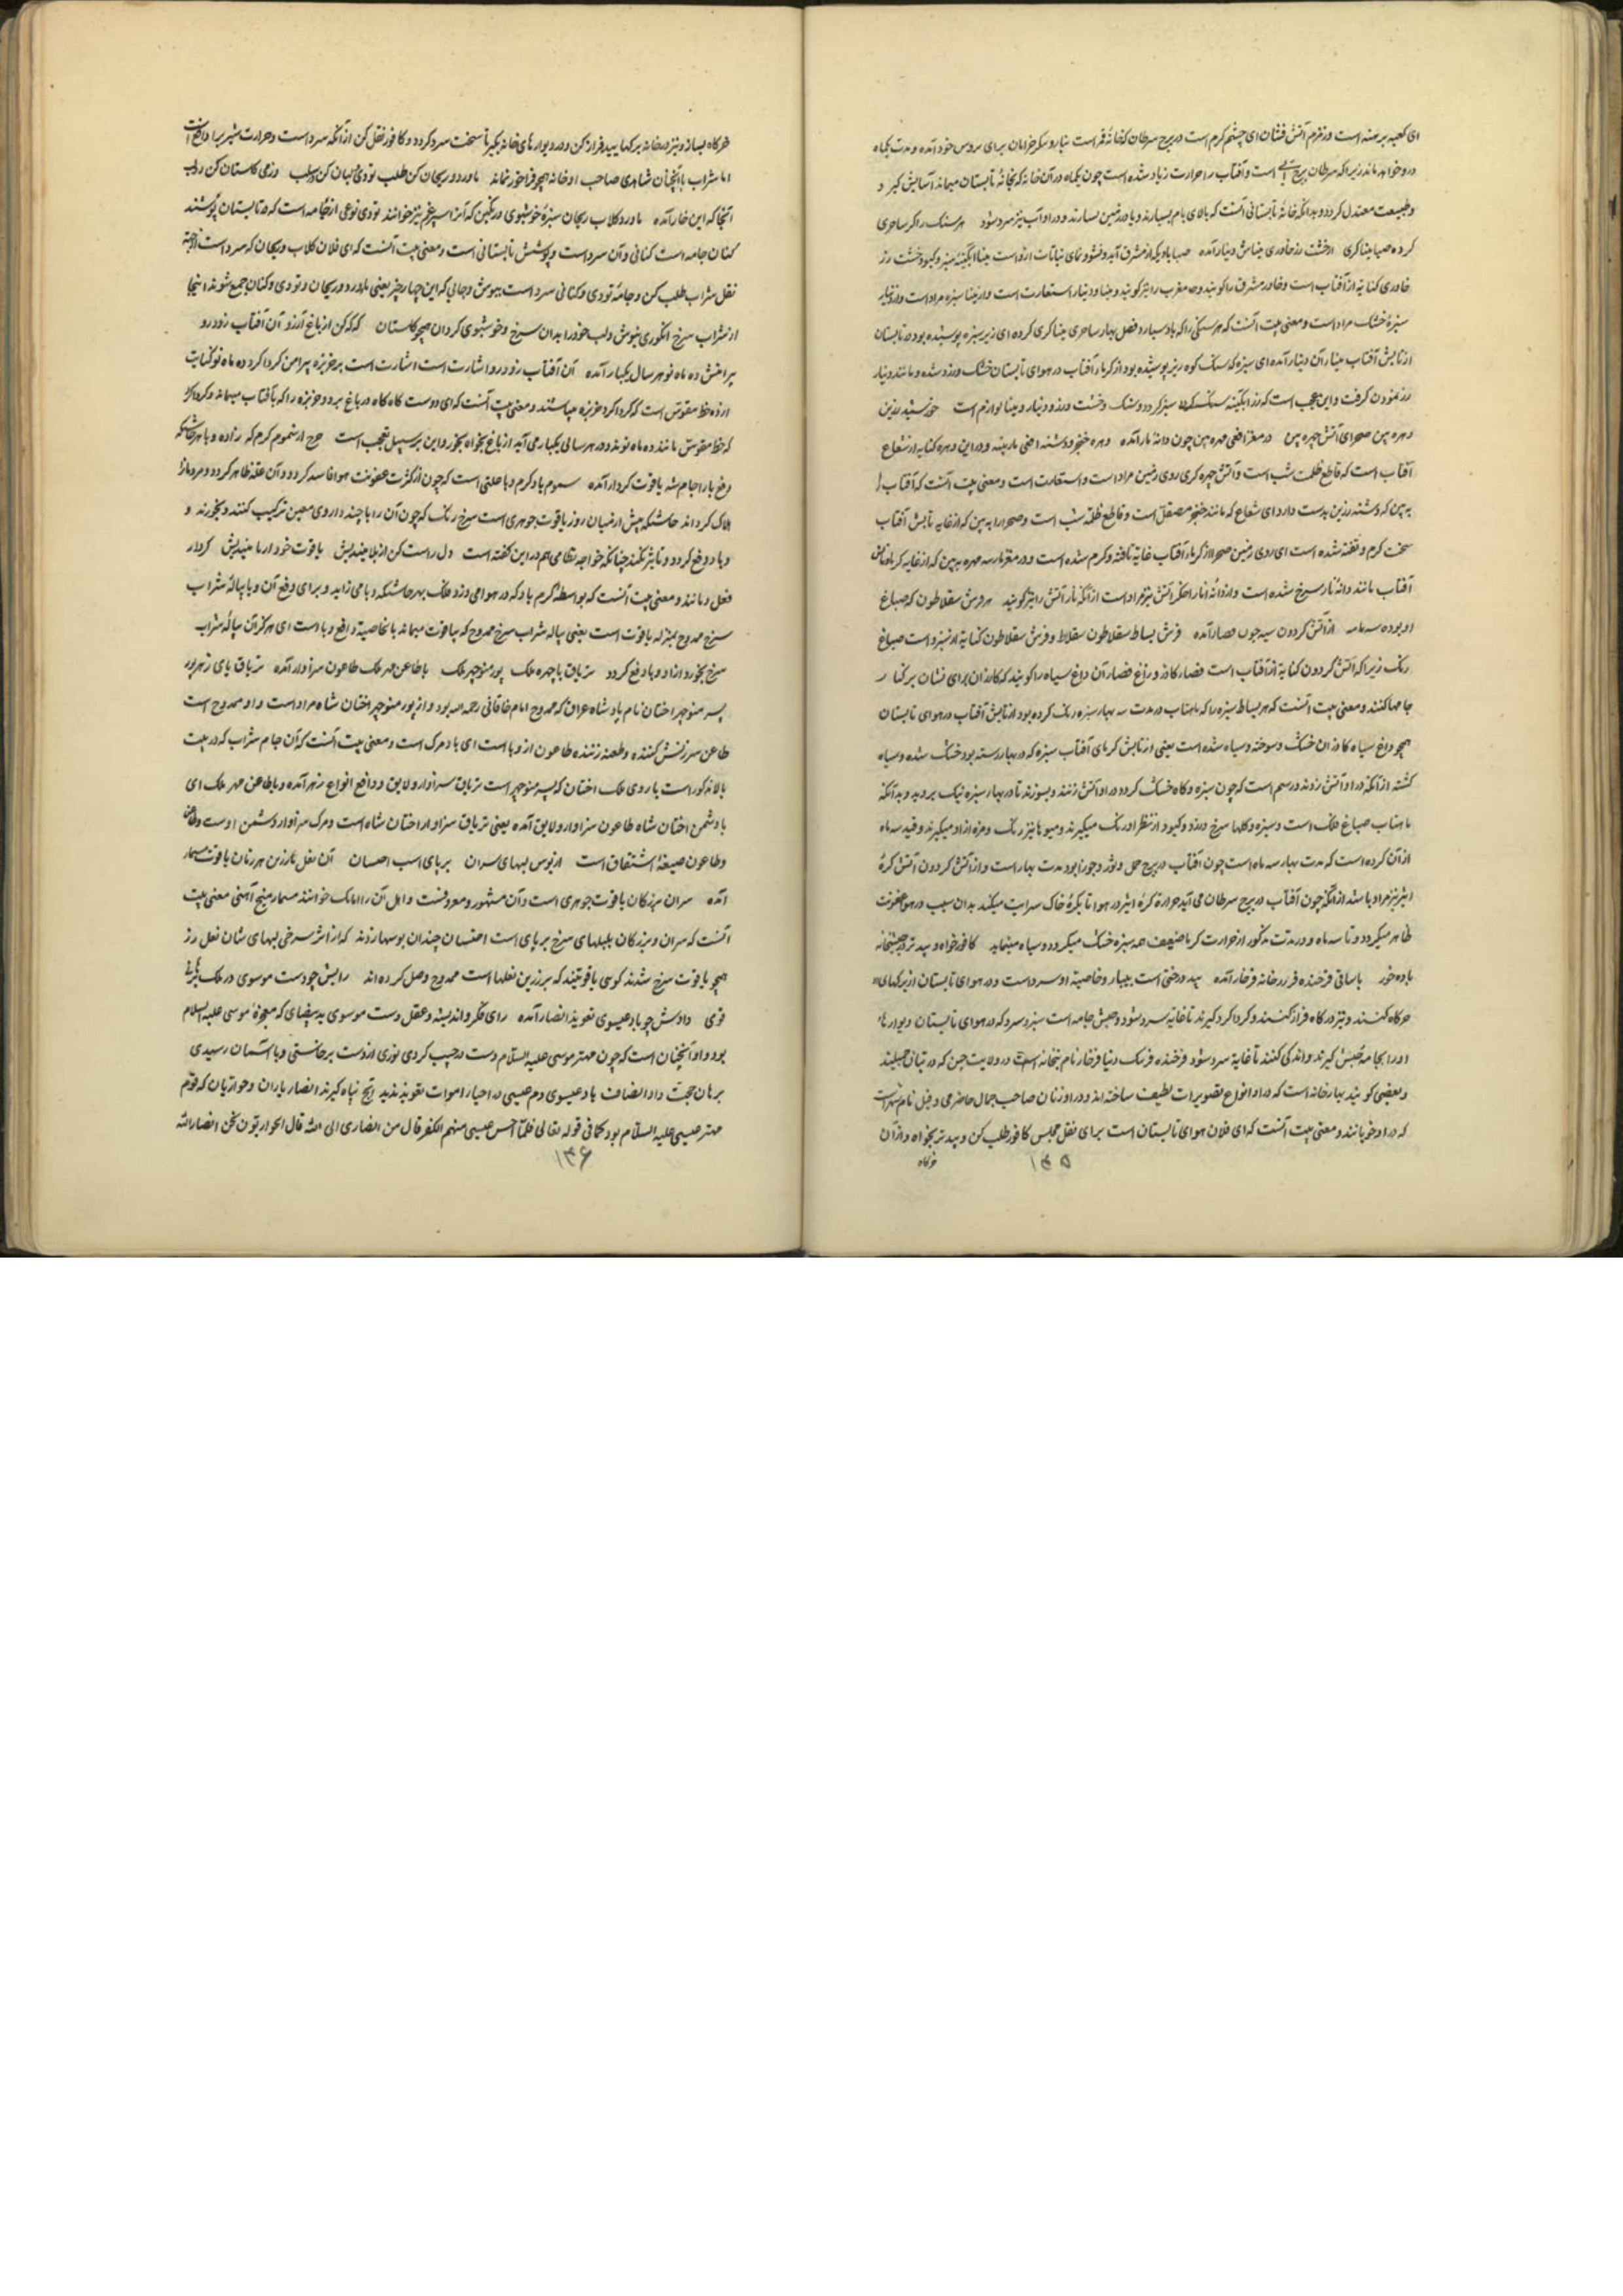 ای کعبه برهنه است و زمزم آتش فشان ای چشم گرم است در برج سرطان که خانهٔ قمر است برای عروس خود آمده و مدت یکماه
در و خواهد ماند زیرا که سرطان برج است و آفتاب را حرارت زیاد شده است چون یکماه در آن خانه که بخانهٔ تابستان میماند آسایش گیر و
و طبیعت معتدل گردد و بدانکه خانهٔ تابستانی آنست که بالای بام بسازند و یا در زمین بسازند و در او آب نیز سرد شود هر سنگ را کز ساحری
کرده صبا میناگری از خشت زر خاوری میناش دینار آمده صبا باد یکه از مشرق آید و نشو و نمای نباتات ازو است مینا آبگینهٔ سبز و کبود خشت زر
خاوری کنایه از آفتاب است و خاور مشرق را گویند و مغرب را نیز گویند و مینا و دینار استعارت است و از مینا سبزه مراد است و از دینار
سبزهٔ خشک مراد است و معنی بیت آنست که هر سنگی را که باد صبا در فصل بهار ساحری میناگری کرده ای زیر سبزه پوشیده بود در تابستان
از تابش آفتاب مینا را آن دینار آمده ای سبزه که سنگ کوه زیر پوشیده بود از گرما آفتاب در هوای تابستان خشک و زرد شده و مانند دینار
زر نمودن گرفت و این عجب است که زر آبگینه سنگ که سبز گردد و سنگ و خشت و زر و دینار و مینا لوازم است خورشید زرین
دهره بین صحرای آتش چهره بین در مغز افعی مهره بین چون دانهٔ نار آمده دهره خنجر و دشنه افعی مار و در این دهره کنایه از شعاع
آفتاب است که قاطع ظلمت شب است و آتش چهره گری روی زمین مراد است و استعارت است و معنی بیت آنست که آفتاب را
به بین که دشنه زرین بدست دارد ای شعاع که مانند خنجر مصقل است و قاطع ظلمه شب است و صحرا را به بین که از غایه تابش آفتاب
سخت گرم و تفته شده است ای روی زمین صحرا از گرما آفتاب غایة تافته و گرم شده است و در مغز مار سه مهره به بین که از غایه گرما و تابش
آفتاب مانند دانهٔ نار سرخ شده است و از دانهٔ انار اخگر آتش نیز مراد است از آنکه نار آتش را نیز گویند هر فرش سقلاطون که صباغ
او بوده سه ماه از آتش گردون سیه چون قصار آمده فرش بساط سقلاطون سقلاط و فرش سقلاطون کنایه از سبزه است صباغ
رنگ زیرا که آتش گردون کنایه از آفتاب است قصار کازر و داغ قصار آن داغ سیاه را گویند که کازران برای نشان بر کنار
جامها کنند و معنی بیت آنست که هر بساط سبزه را که ماهتاب در مدت سه بهار سبزه رنگ کرده بود از تابش آفتاب در هوای تابستان
همچو داغ سیاه کازران خشک و سوخته و سیاه شده است یعنی از تابش گرمای آفتاب سبزه که در بهار رسته بود خشک شده و سیاه
گشته از آنکه در او آتش زدند و رسم است که چون سبزه و کاه خشک گردد در او آتش زنند و بسوزند تا در بهار سبزه نیک بروید و بدآنکه
ماهتاب صباغ فلک است و سبزه و گلها سرخ و زرد و کبود از نظر او رنگ میگیرند و میوها نیز رنگ و مزه از او میگیرند و قید سه ماه
از آن کرده است که مدت بهار سه ماه است چون آفتاب در برج حمل و ثور و جوزا بود مدت بهار است و از آتش گردون آتش کرهٔ
اثیر نیز مراد باشد از آنکه چون آفتاب در برج سرطان می آید حرارة کرهٔ اثیر در هوا تا بکرهٔ خاک سرایت میکند بدان سبب در هوا عفونت
ظاهر میگردد و تا سه ماه و در مدت مذکور از حرارت گرما ضعیف همه سبزه خشک میگردد و سیاه مینماید کافور خواه و بید تر در خیشخانه
باده خور با ساقی فرخنده فر زو خانه فرخار آمده بید درختی است بیبار و خاصیة او سرد است و در هوای تابستان از برگهای او
خرگاه کنند و نیز در گاه فراز کنند و گرداگرد گیرند تا خانه سرد شود و خیش جامه است سبز و سرد که در هوای تابستان دیوارها
او را بجامه خیش گیرند و اندکی کنند تا غایة سرد شود فرخنده فر نیک و زیبا فرخار نام بتخانه است در ولایت چین که در تبتان
و بعضی گویند بهارخانه است که در او انواع تصویرات لطیف ساخته اند و در او زنان صاحب جمال حاضر می و قیل نام شهریست
که در او خوبانند و معنی بیت آنست که ای فلان هوای تابستان است برای نقل مجلس کافور طلب کن و بید تر بخواه و از آن
خرگاه
۱۳۵
خرگاه بساز و نیز در خانه برگهای بید فراز کن و در دیوارهای خانه بگیر تا سخت سرد گردد و کافور نقل کن از آنکه سرد است و حرارت شیر را دافع است
اما شراب با آنچنان شاهدی صاحب او خانه همچو فرخار نماند ماورد و ریحان کن طلب توزی و کتان کن سلب وز می گلستان کن دو لب
آنجا که این خار آمده ماورد گلاب ریحان سبزهٔ خوشبوی و رنگین که آنرا اسپرغم نیز خوانند توزی نوعی از جامه است که در تابستان پوشند
کتان جامه است کتانی و آن سرد است و پوشش تابستانی است و معنی بیت آنست که ای فلان گلاب و ریحان که سرد است از جهة
نقل شراب طلب کن و جامهٔ توزی و کتانی سرد است بپوش و جایی که این چهار چیز یعنی ماورد و ریحان و توزی و کتان جمع شوند اینجا
از شراب سرخ انگوری بنوش و لب خود را بدان سرخ و خوشبوی گردان همچو گلستان گه گه کن از باغ آرزو آن آفتاب زردرو
پیرامنش ده ماه نو هر سال یکبار آمده آن آفتاب زردرو اشارت است اشارت است بر خربزه پیرامن گرداگرد ده ماه نو کنایت
از ده خط مقوس است که گرداگرد خربزه میباشند و معنی بیت آنست که ای دوست گاه گاه در باغ برو و خربزه را که بآفتاب میماند و گرداگرد
که خط مقوس مانند ده ماه نوند و در هر سالی یکبار می آید از باغ بخواه بخور و این بر سبیل تعجب است چرخ از سموم گرمگه زاده وبا هر چاشتگه
دفع وبا را جام شه یاقوت کردار آمده سموم باد گرم وبا علتی است که چون از کثرت عفونت هوا فاسد گردد و آن علة ظاهر گردد و مردمانرا
هلاک گرداند چاشتگه پیش از میان روز یاقوت جوهری است سرخ رنگ که چون آن را با چند داروی معین ترکیب کنند و بخورند و
وبا دفع گردد و تاثیر نکند چنانکه خواجه نظامی هم در این گفته است دل راست کن از بلا میندیش یاقوت خور از وبا میندیش کردار
فعل و مانند و معنی بیت آنست که بواسطهٔ گرم باد که در هوا می وزد فلک بهر چاشتگه وبا می زاید و برای دفع آن وبا پیالهٔ شراب
سرخ ممدوح بمنزله یاقوت است یعنی پیاله شراب سرخ ممدوح که بیاقوت میماند بالخاصیة دافع وبا است ای هر که از آن پیالهٔ شراب
سرخ بخورد از او وبا دفع گردد تریاق با چهره ملک پور منوچهر ملک با طاعن مهر ملک طاعون سزاوار آمده تریاق پای زهر پور
پسر منوچهر اخستان نام پادشاه عراق که ممدوح امام خاقانی رحمه الله بود و از پور منوچهر اخستان شاه مراد است و او ممدوح است
طاعن سرزنش کننده و طعنه زننده طاعون از وبا است ای باد مرگ است و معنی بیت آنست که آن جام شراب که در بیت
بالا مذکور است با روی ملک اخستان که پسر منوچهر است تریاق سزاوار و لایق و دافع انواع زهر آمده و با طاعن مهر ملک ای
با دشمن اخستان شاه طاعون سزاوار و لایق آمده یعنی تریاق سزاوار اخستان شاه است و مرگ سزاوار دشمن اوست و طاعن
و طاعون صیغهٔ اشتقاق است از بوس لبهای سران بر پای اسب اخستان آن نعل زرین هر زمان یاقوت مسمار
آمده سران بزرگان یاقوت جوهری است و آن مشهور و معروفست مسمار میخ آهنی معنی بیت
آنست که سران و بزرگان بلبهای سرخ بر پای اسب اخستان چندان بوسها زدند که از اثر سرخی لبهای شان نعل زر
همچو یاقوت سرخ شدند گویی یاقوتند که بر زرین نعلها است ممدوح وصل کرده اند رایش چو دست موسوی در ملک برهانی
قوی دادش چو باد عیسوی تعویذ انصار آمده رای فکر و اندیشه و عقل دست موسوی ید بیضای که معجزهٔ موسی علیه السلام
بود و او آنچنان است که چون مهتر موسی علیه السلام دست در جیب کردی نوری از دست برخاستی و با آسمان رسیدی
برهان حجت داد انصاف باد عیسوی دم عیسی در احیاء اموات تعویذ پناه گیرند انصار یاران و حواریان که قوم
مهتر عیسی علیه السلام بود کما فی قوله تعالی فلما احس عیسی منهم الکفر قال من انصاری الی الله قال الحواریون نحن انصار الله
۱۳۶